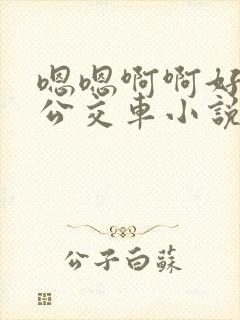 嗯嗯啊啊好
公交车小説
公子白蘇